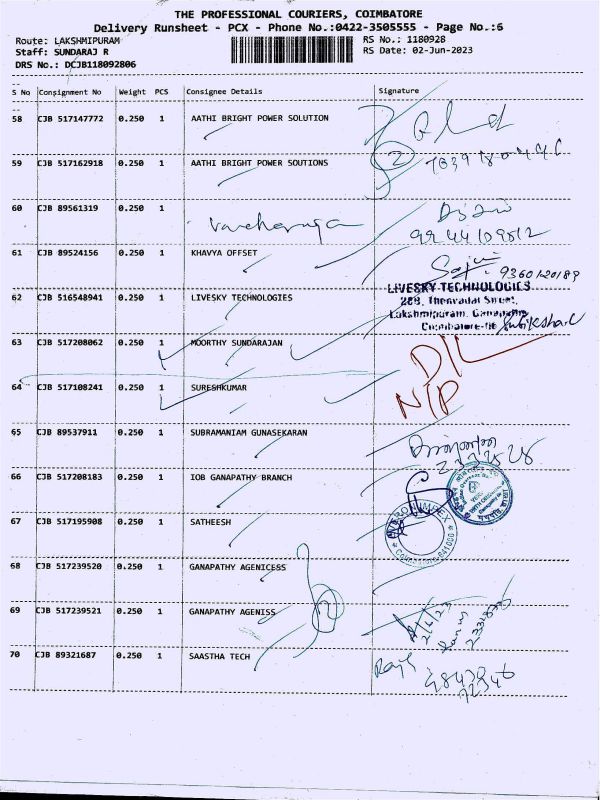 THE PROFESSIONAL COURIERS, COIMBATORE
Delivery Runsheet - PCX - Phone No.:0422-3505555 - Page No.:6
Route: LAKSHMIPURAM RS No.: 1180928
Staff: SUNDARAJ R RS Date: 02-Jun-2023
DRS No.: DCJB118092806
S No Consignment No Weight PCS Consignee Details Signature
58 CJB 517147772 0.250 1 AATHI BRIGHT POWER SOLUTION
59 CJB 517162918 0.250 1 AATHI BRIGHT POWER SOUTIONS
2
60 CJB 89561319 0.250 1
61 CJB 89524156 0.250 1 KHAVYA OFFSET
9360120189
LIVESKY TECHNOLOGIES
62 CJB 516548941 0.250 1 LIVESKY TECHNOLOGIES
Lakshmipuram, Ganapathy
63 CJB 517208062 0.250 1 MOORTHY SUNDARAJAN
D/L
64 CJB 517108241 0.250 1 SURESHKUMAR
N/P
65 CJB 89537911 0.250 1 SUBRAMANIAM GUNASEKARAN
66 CJB 517208183 0.250 1 IOB GANAPATHY BRANCH
67 CJB 517195908 0.250 1 SATHEESH
68 CJB 517239520 0.250 1 GANAPATHY AGENICESS
69 CJB 517239521 0.250 1 GANAPATHY AGENISS
2
70 CJB 89321687 0.250 1 SAASTHA TECH